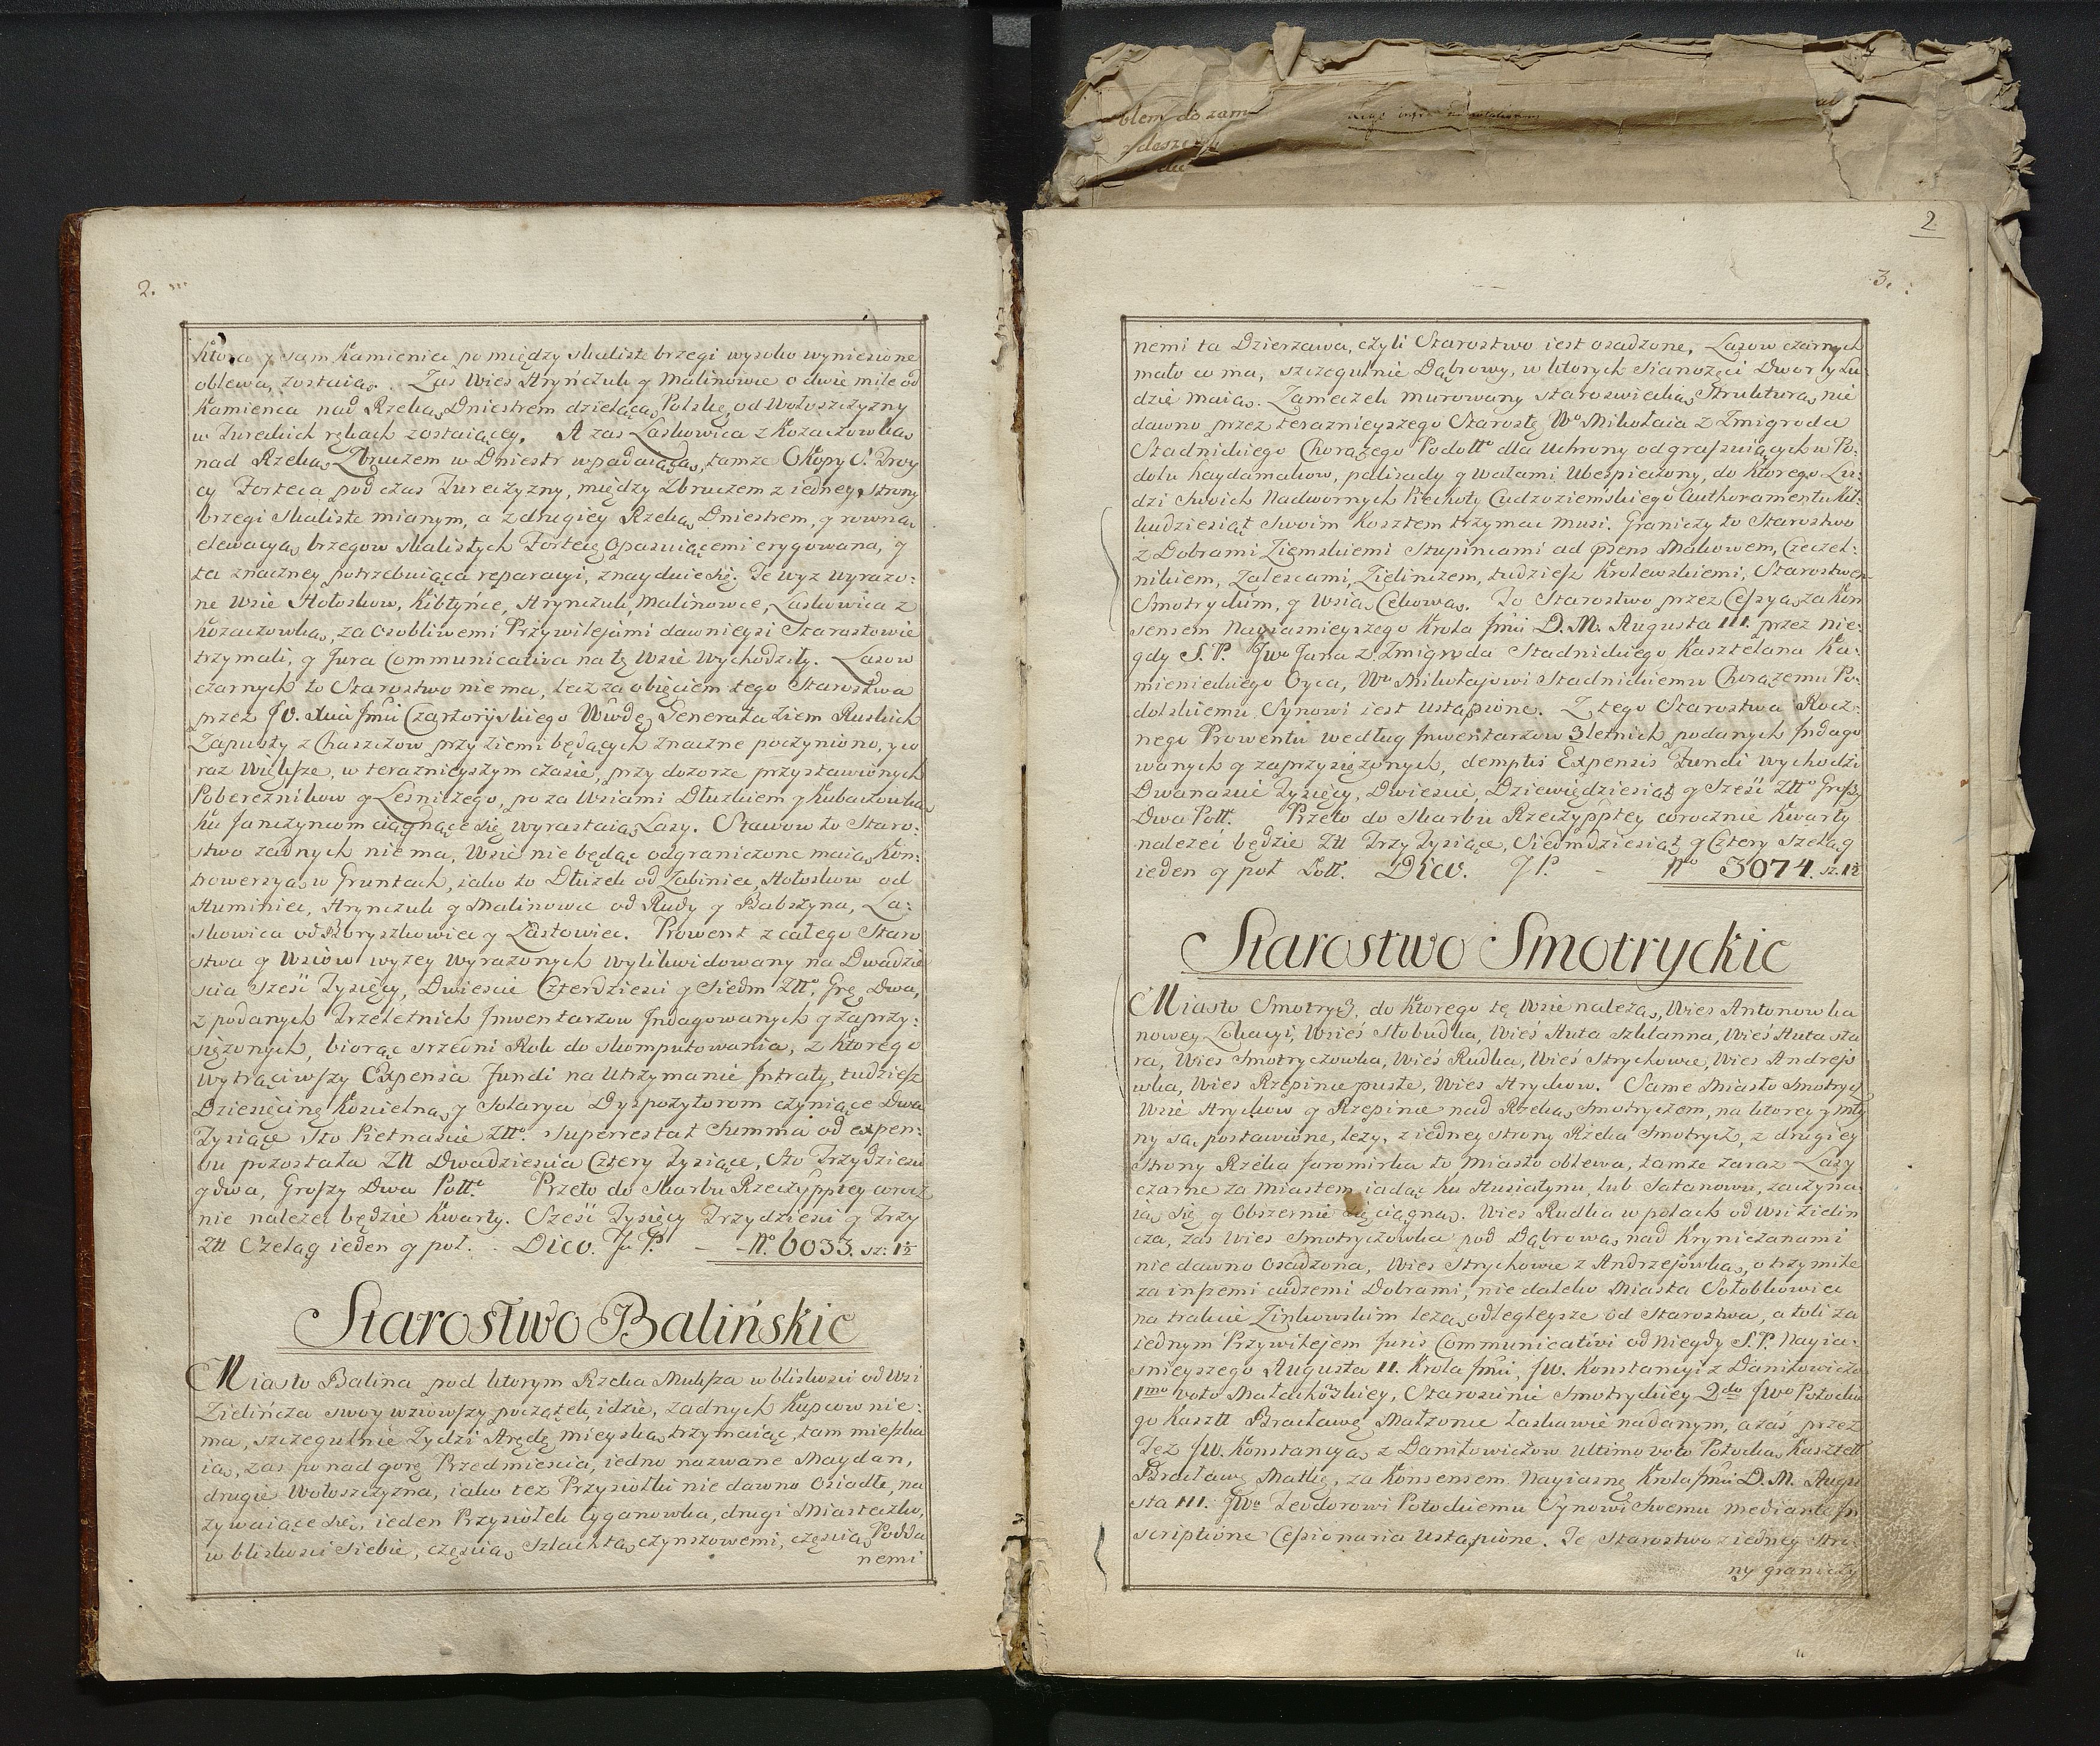 2.
Ktora y sam Kamieniec pomiędzy skaliste brzegi wysoko wyniesione
oblewa, zostaią. Zas Wies Hryńczuk y Malinowce o dwie mile od
Kamienca nad Rzeką Dniestrem dzielącą Polskę, od Wołoszczyzny
w Tureckich rękach zostaiącey. A zas Laskowica z Kozaczowką
nad Rzeką Zbruczem w Dniestr wpadaiącą, tamze Okopy S. Troy
cy Forteca pod czas Tureczyzny, między Zbruczem z iedney strony
brzegi skaliste mianym, a z drugiey Rzeką Dniestrem, y rowną
elewacyą brzegow skalistych Fortecę opasuiącemi erygowana, y
ta znaczney potrzebuiąca reparacyi, znayduie się. Te wyz wyrazo:
ne Wsie Hołoskow, Kibłyńce, Hrynczuk, Malinowce, Laskowica z
Kozaczowką, za osobliwemi Przywilejami dawnieysi Starostowie
trzymali, y Jura Communicativa na tę Wsie wychodziły. Lasow
czarnych to Starostwo nie ma, lecz za obięciem tego Starostwa
przez JO. Xcia Jmci Czartoryskiego Wwdę Generała Ziem Ruskich
Zapusty z Chaszczow przy ziemi będących znaczne poczyniono, y co
raz większe, w teraznieyszym czasie, przy dozorze przystawionych
Poberezników y Lesniczego, po za Wsiami Dłuzkiem y Kubaczowką
ku Janczyncom ciągnące się wyrastaią Lasy. Stawow to Staro:
stwo zadnych nie ma, Wsie nie będąc odgraniczone maią Kon:
trowersyą w Gruntach, iako to Dłuzek od Zabiniec, Hołoskow od
Huminiec, Hrynczuk y Malinowce od Rudy y Babszyna, La:
skowica od Boryszkowiec y Zastowiec. Prowent z całego Staro
stwa y Wsiów wyzey wyrazonych wylikwidowany na Dwadzie
scia szesć Tysięcy, Dwiescie Czterdziesci y Siedm Złł. Grę Dwa,
z podanych Trzeletnich Jnwentarzow Jndagowanych y zaprzy:
siężonych, biorąc srzedni Rok do skomputowania, z Ktorego
wytrąciwszy Expensa Fundi na utrzymanie Jntraty, tudziesz
Dziesięcinę Koscielną y Solarya Dyspozytorom czyniące Dwa
Tysiące Sto Pietnascie Złł. Superrestat Summa od expen:
su pozostała Złł Dwadziescia Cztery Tysiące, Sto Trzydziesci
y dwa, Groszy Dwa Poll. Przeto do Skarbu Rzeczyppltey corocz
nie nalezeć będzie Kwarty. Szesć Tysięcy Trzydziesci y Trzy
Złł Szeląg ieden y poł. Dico. Fl. P. — No. 6033. sz: 1½
Starostwo Balińskie
Miasto Balina pod ktorym Rzeka Muksza w bliskosci od Wsi
Zielińcza swoy wziowszy początek, idzie, zadnych Kupcow nie:
ma, szczegulnie Zydzi Arędę mieyską trzymaiąc, tam mieszka
ią, zas ponad gorę Przedmiescia, iedno nazwane Maydan,
drugie Wołoszczyzna, iako tez Przysiołki nie dawno osiadłe, na
zywaiące się, ieden Przysiołek Cyganowka, drugi Miasteczko,
w bliskosci Siebie, częscią Szlachtą czynszowemi, częscią Podda
nemi
2
3.
nemi ta Dzierzawa, czyli Starostwo iest osadzone. Lasow czarnych
mało co ma, szczegulnie Dąbrowy, w ktorych Sianozęci Dwor y Lu
dzie maią. Zameczek murowany staroswiecką Strukturą nie
dawno przez teraznieyszego Starostę Wo Mikołaia z Zmigroda
Stadnickiego Chorązego Podoll dla Uchrony od grassuiących w Po:
dolu haydamakow, palisady y wałami ubespieczony, do Ktorego Lu:
dzi swoich Nadwornych Piechoty Cudzoziemskiego Authoramentu Kil:
kudziesiąt swoim kosztem trzymac musi. Graniczy to Starostwo
z Dobrami Ziemskiemi Stupincami ad presens Makowem, Czeczel:
nikiem, Zalescami, Zielinczem, tudziesz Krolewskiemi, Starostwem
Smotryckim, y Wsią Cekową. To Starostwo przez Cessyą za Kon
sensem Nayiasnieyszego Krola Jmci D. M. Augusta III. przez nie:
gdy S. P. Jwo Jana z Zmigroda Stadnickiego Kasztelana Ka:
mienieckiego Oyca, Wo Mikołajowi Stadnickiemu Chorązemu Po:
dolskiemu Synowi iest ustąpione. Z tego Starostwa Rocz:
nego Prowentu według Jnwentarzow 3letnich podanych Jndago
wanych y zaprzysiężonych, demptis Expensis Fundi wychodzi
Dwanascie Tysięcy, Dwiescie, Dziewięćdziesiąt y Szesć Złł Groszy
Dwa Poll. Przeto do Skarbu Rzeczyppltey corocznie Kwarty
nalezeć będzie Złł Trzy Tysiące, Siedmdziesiąt y Cztery Szeląg
ieden y poł Poll. Dico. Fl P. - No 3074. sz. 1½
Starostwo Smotryckie
Miasto Smotrycz, do Ktorego tę Wsie nalezą, Wies Antonowka
nowey Lokacyi, Wsieś Słobudka, Wieś Huta Szklanna, Wieś Huta sta
ra, Wies Smotryczowka, Wieś Rudka, Wieś Strychowce, Wies Andrejo
wka, Wies Rzepince puste, Wies Hryckow. Same Miasto Smotrycz
Wsie Hryckow y Rzepince nad Rzeką Smotryczem, na ktorey y mły
ny są postawione, lezy, z iedney strony Rzeka Smotrycz, z drugiey
strony Rzeka Jaromirka to Miasto oblewa, tamze zaraz Lasy
czarne za Miastem iadąc ku Husiatynu, lub Satanowu, zaczyna
ią się y obszernie się ciągną. Wies Rudka w polach od Wsi Zielin
cza, zas Wies Smotryczowka pod Dąbrową nad Kryniczanami
nie dawno osadzona, Wies Strychowce z Andrzejowką, o trzy mile
za inszemi cudzemi Dobrami, nie daleko Miasta Sołobkowice
na trakcie Zinkowskim lezą odległeysze od Starostwa, a toli za
iednym Przywilejem Juris Communicativi od niegdy S. P. Nayia:
snieyszego Augusta II. Krola Jmci, JW. Konstancyi z Daniłowiczow
1mo voto Małachowskiey, Staroscinie Smotryckiey 2do Jwo Potockie
go Kasztt Bracławę Małzonce łaskawie nadanym, a zaś przez
Tez JW. Konstancyą z Daniłowiczow ultimo voto Potocką Kasztell
Bracławę Matkę, za Konsensem Nayiasnę Krola Jmci D. M. Augu
sta III. Jwo Teodorowi Potockiemu Synowi Swemu mediante In
scriptione Cessionaria ustąpione. Te Starostwo z iedney Stro
ny graniczy